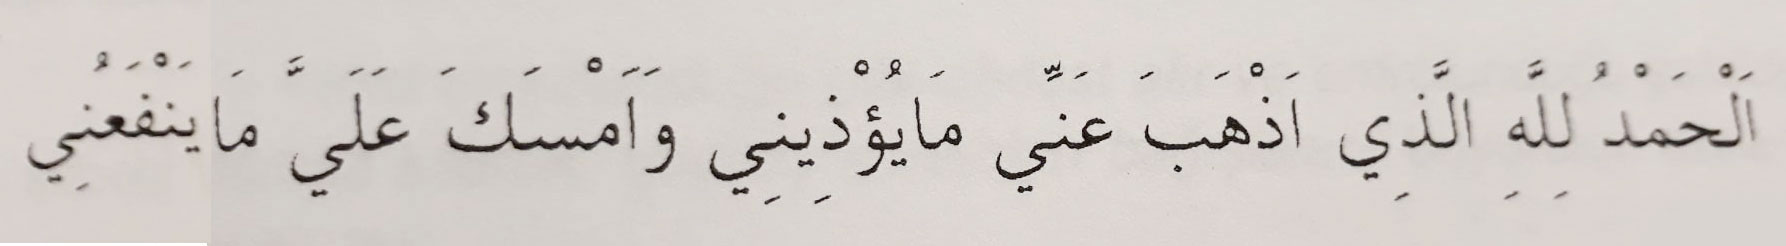 اَلْحَمْدُ لِلَّهِ الَّذِي اَذْهَبَ عَنِّي مَايُؤْذِينِي وَاَمْسَكَ عَلَيَّ مَايَنْفَعُنِي